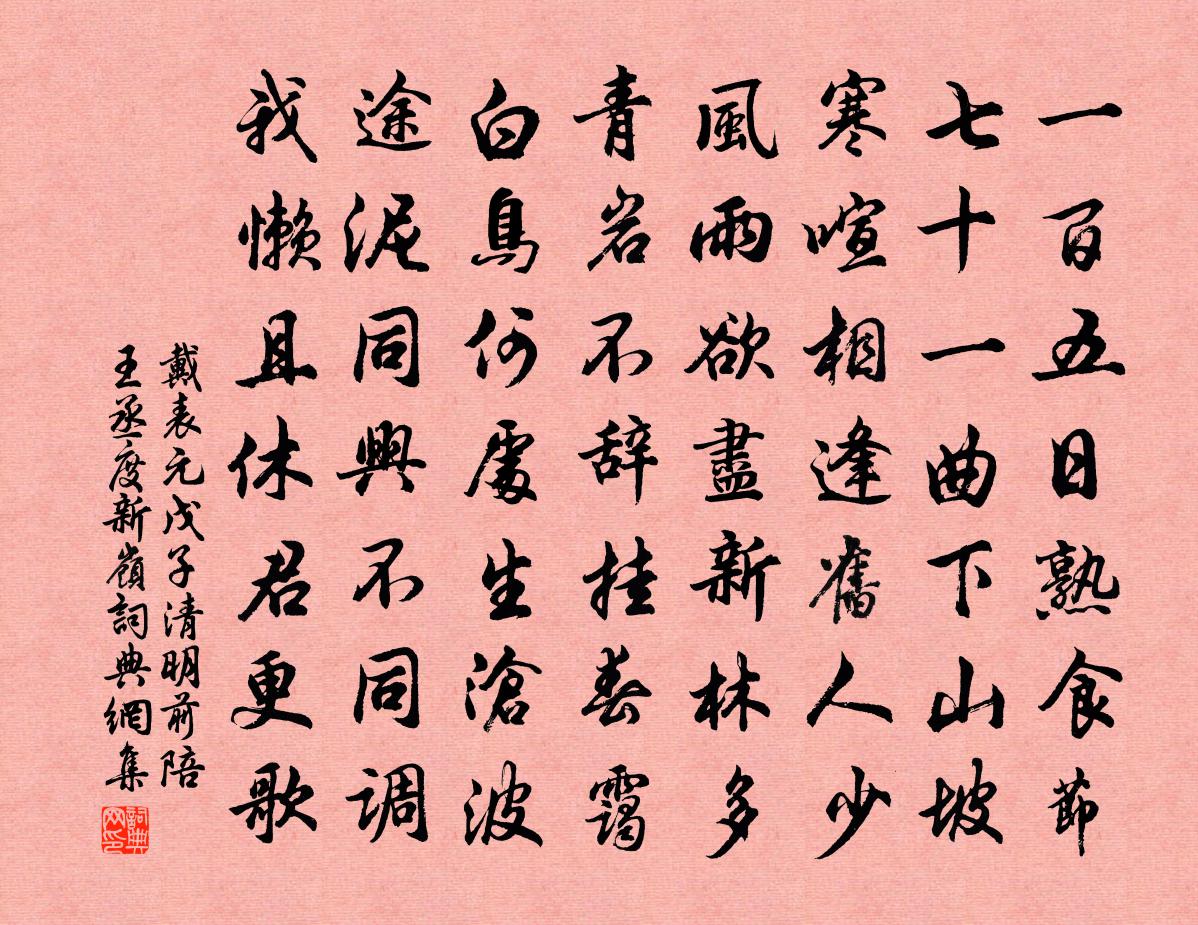 一百五日熟食節
七十一曲下山坡
寒喧相逢舊人少
風雨欲盡新林多
青岩不辞挂春靄
白鳥何處生滄波
途泥同興不同調
我懒且休君更歌
戴表元戊子清明前陪
王丞度新嶺詞典網集
詞典
网印